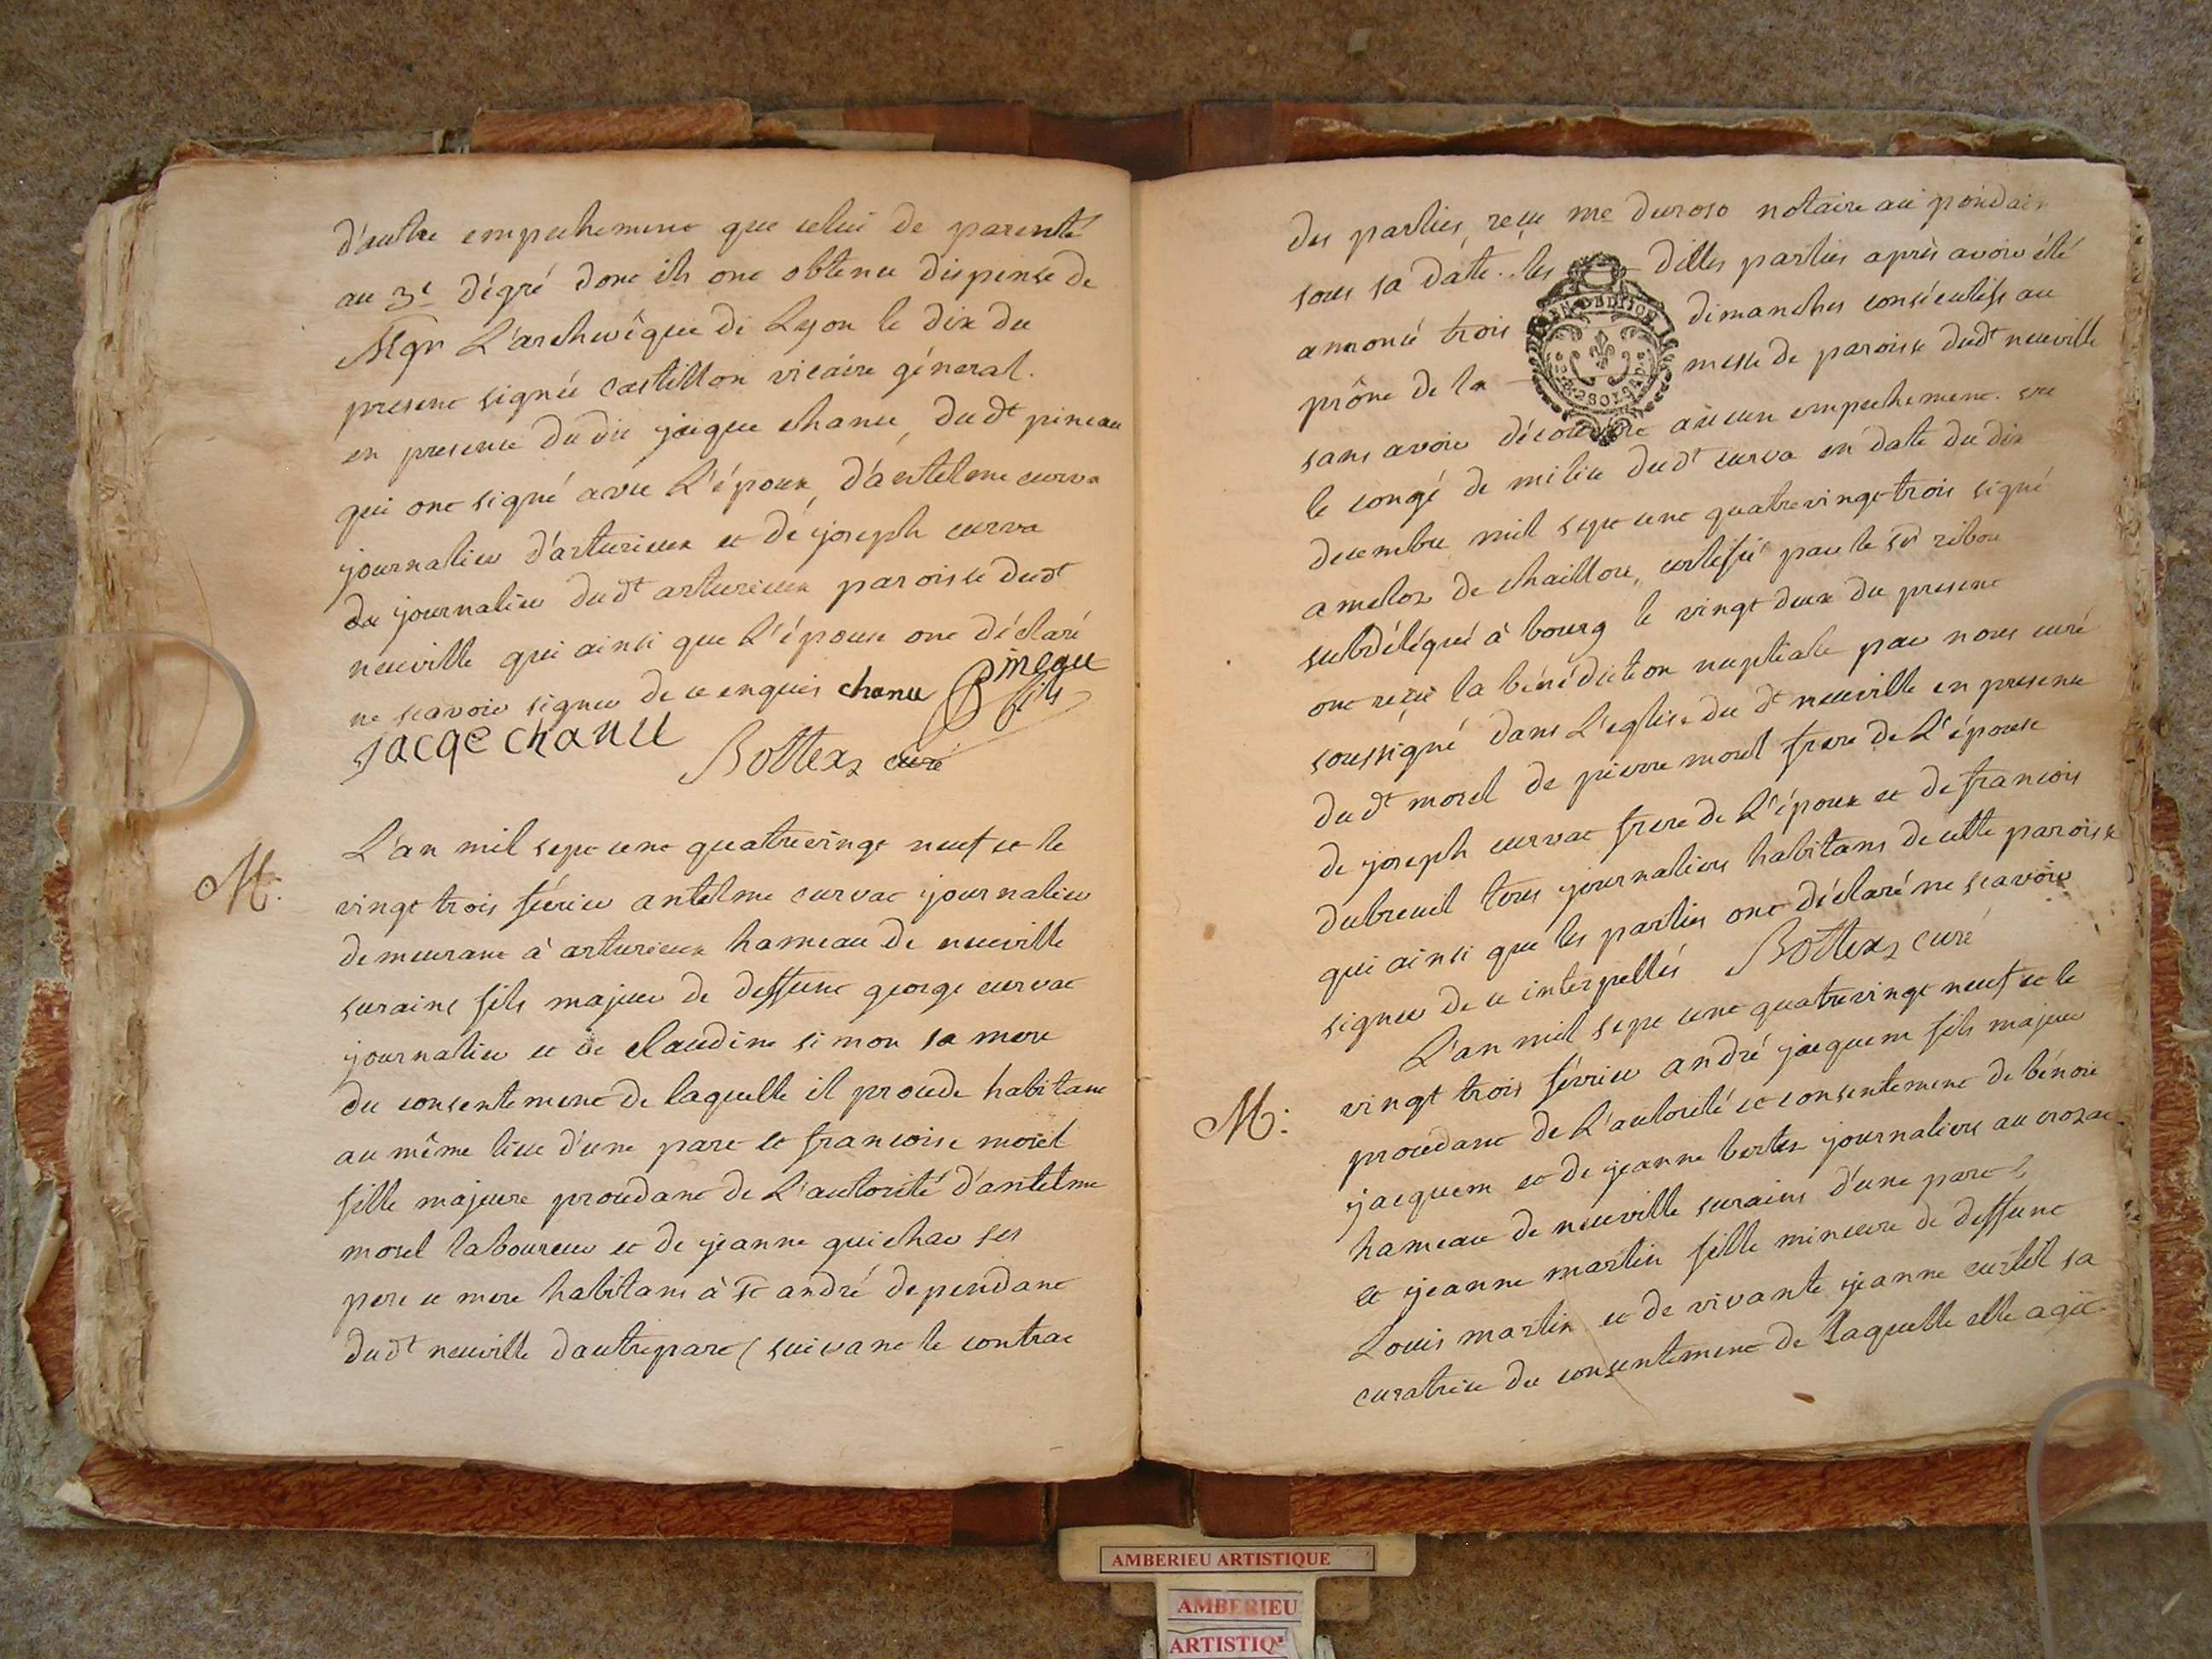 d'autre empechement que celui de parenté
au 3e dégré dont ils ont obtenu dispense de
Mgr L'archevêque de Lyon le dix du
present signée castillon vicaire géneral.
en presence du dit jacque chanu, dudt pineau
qui ont signé avec L'époux, d'antelme curva
journalier d'arturieux et de joseph curva
journalier dudt arturieux paroisse dudt
neuville qui ainsi que L'épouse ont déclaré
ne scavoir signer de ce enquis chanu Pineau
fils
jacqe chanu
Bottex curé
M:
L'an mil sept cent quatrevingt neuf et le
vingt trois février antelme curvat journalier
demeurant à arturieux hameau de neuville
surains fils majeur de deffunt george curvat
journalier et de claudine simon sa mere
du consentement de laquelle il procede habitant
au même lieu d'une part et francoise morel
fille majeure procedant de L'autorité d'antelme
morel laboureur et de jeanne guichar ses
pere et mere habitans à St andré dependant
dudt neuville dautrepart suivant le contrac
des parties, reçu me duroso notaire au pondain
sous sa date. les dittes parties après avoir été
annoncé trois dimanches consécutifs au
prône de la messe de paroisse dudt neuville
sans avoir découvert aucun empechement. vu
le congé de milice dudt curva en date du dix
decembre mil sept cent quatrevingt-trois signé
amelot de chaillou, certifié par le sr ribou
subdélégué à bourg le vingt deux du present
ont reçu la bénédiction nuptiale par nous curé
soussigné dans L'eglise du dt neuville en presence
du dt morel de pierre morel frere de L'épouse
de joseph curvat frere de L'époux et de francois
dubreuil tous journaliers habitans de cette paroisse
qui ainsi que les parties ont déclaré ne scavoir
signer de ce interpellés Bottex curé
M:
L'an mil sept cent quatrevingt neuf et le
vingt trois février andré jacquem fils majeur
procedant de L'autorité et consentement de bénoit
jacquem et de jeanne bertet journaliers au crozat
hameau de neuville surains d'une part
et jeanne martin fille mineure de deffunt
Louis martin et de vivante jeanne curtil sa
curatrice du consentement de laquelle elle agit
AMBERIEU ARTISTIQUE
AMBERIEU
ARTISTIQ